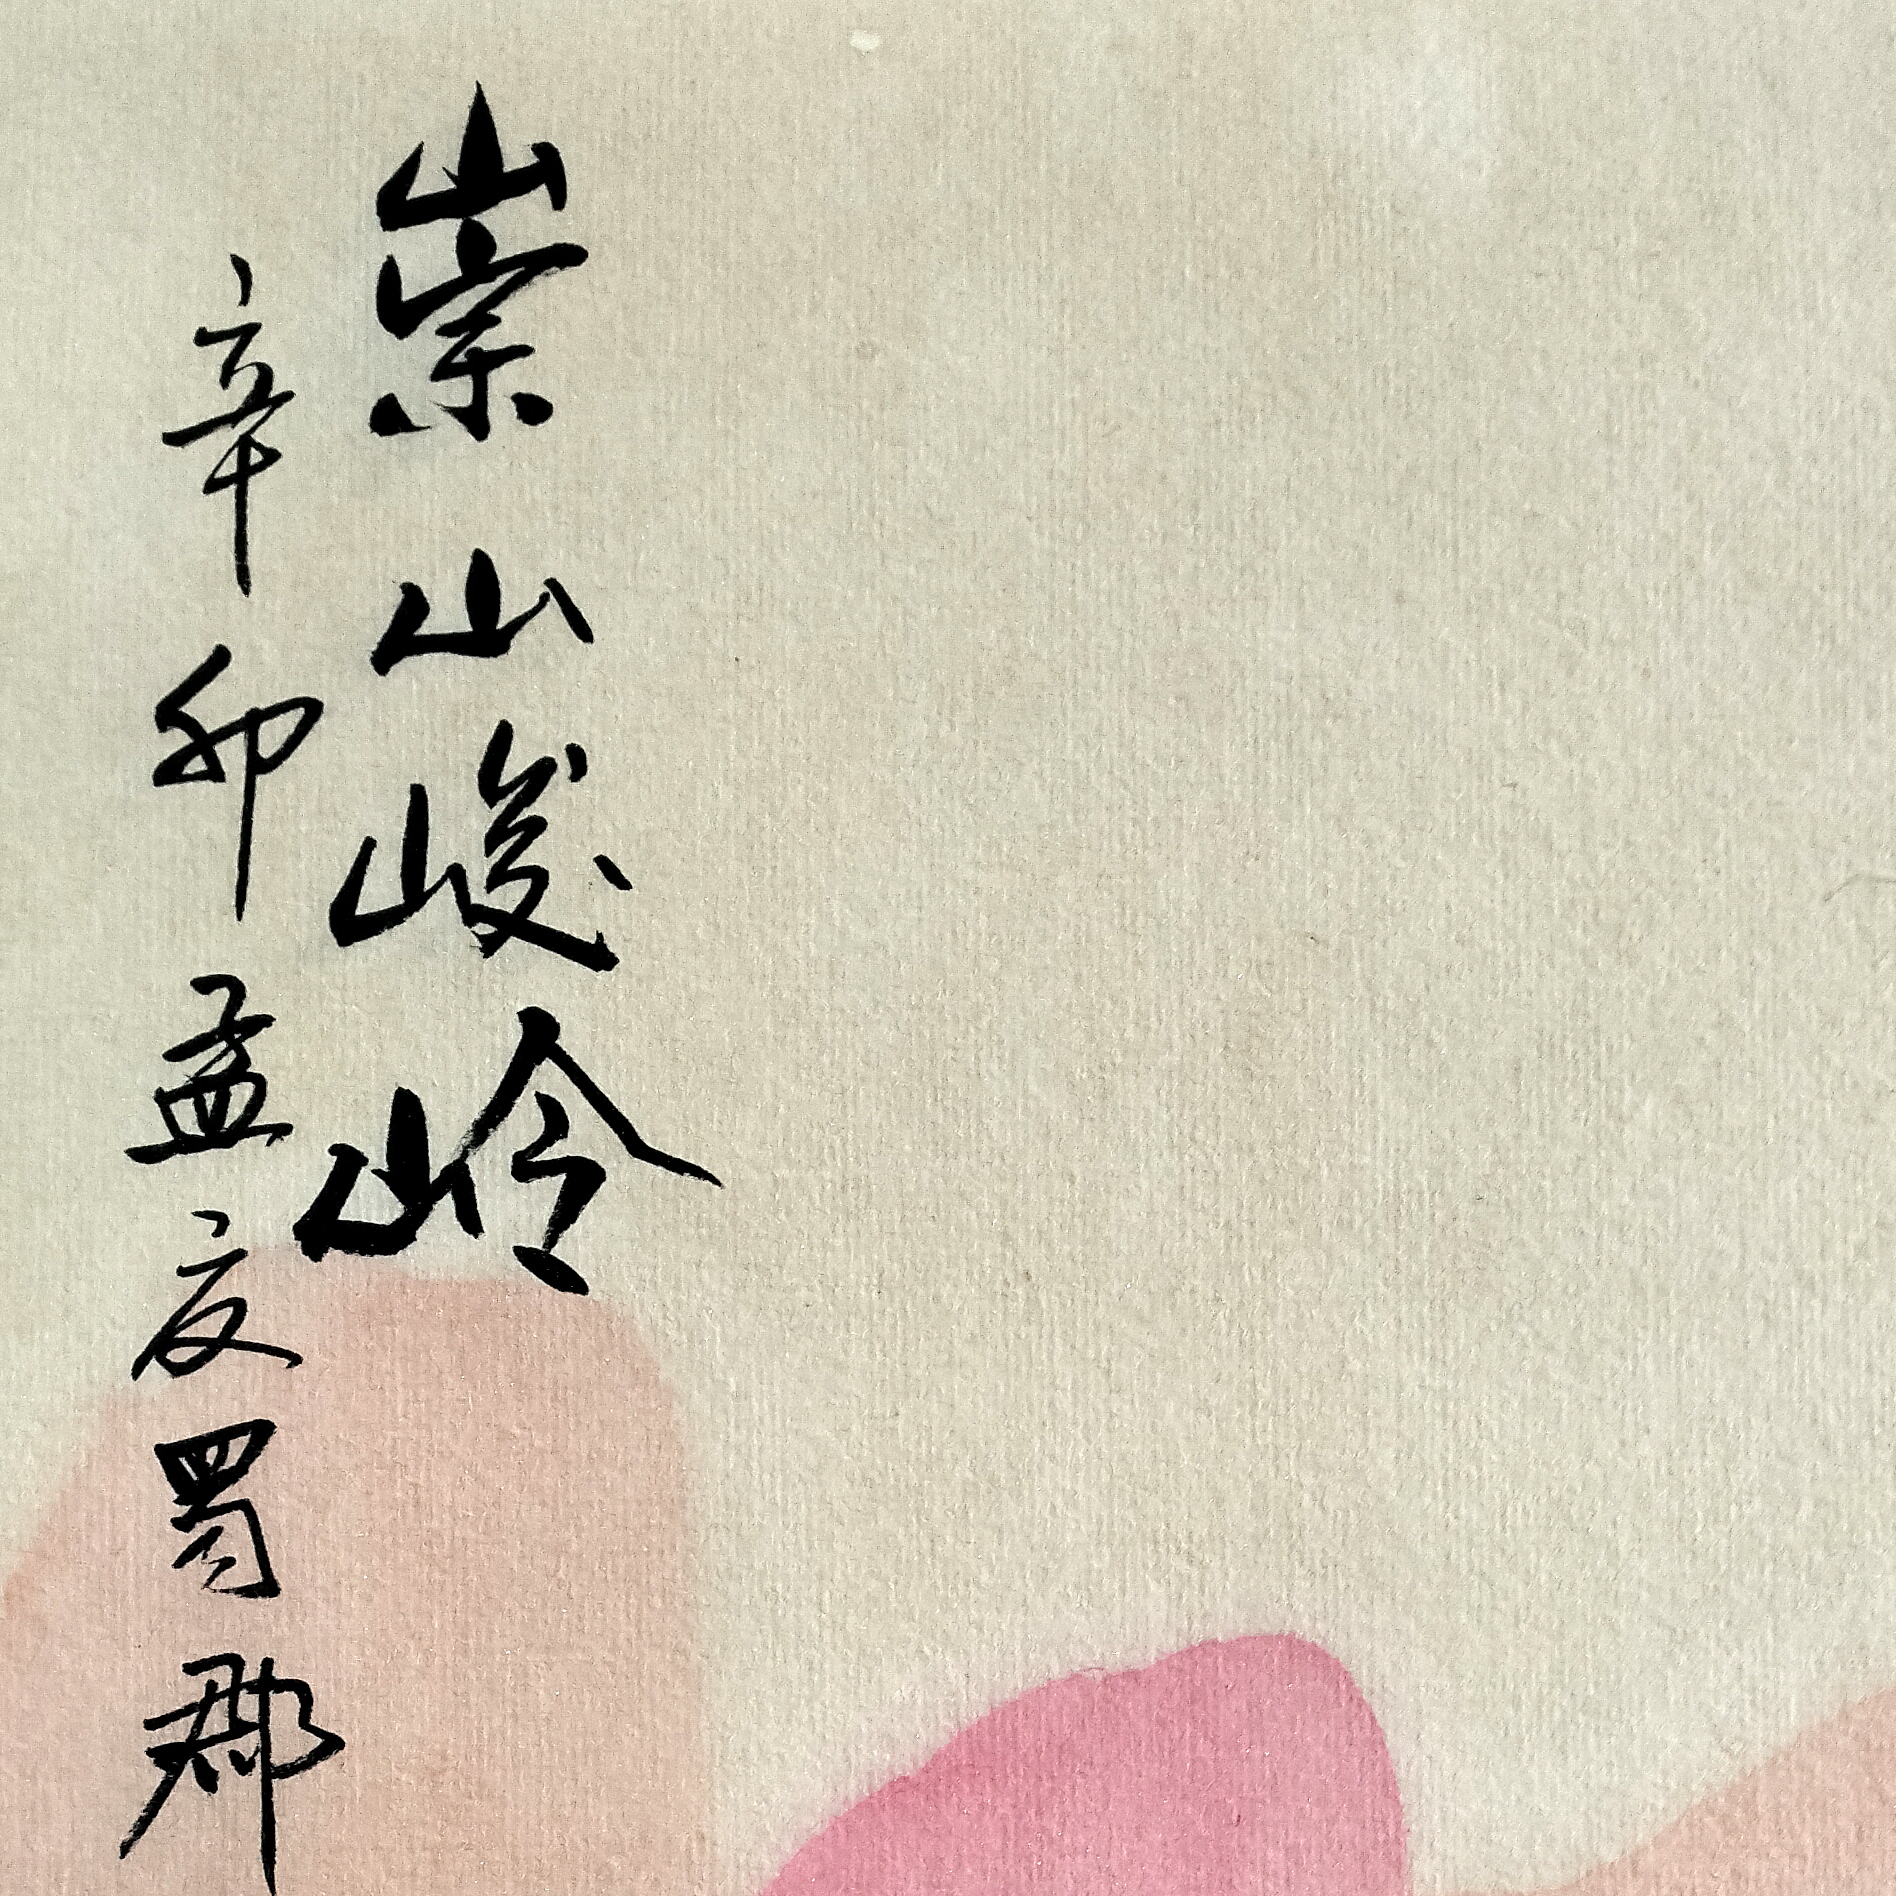 崇山峻岭
辛卯孟夏蜀郡